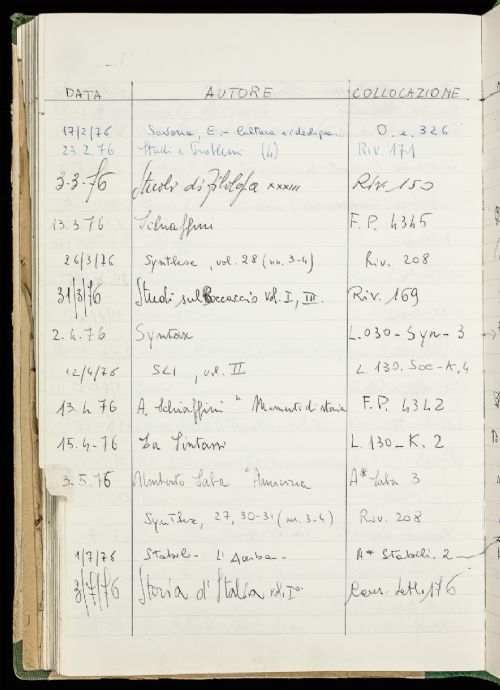 DATA AUTORE COLLOCAZIONE
17/2/76 Savona, E. - Cultura e ideologia.. O. e. 326
23.2.76 Studi e Problemi (4) Riv. 171
3-3-76 Studi di Filologia XXXIII Riv. 150
13.3 76 Schiaffini F.P. 4345
26/3/76 Synthese, vol. 28 (nn. 3-4) Riv. 208
31/3/76 Studi sul Boccaccio vol. I, III. Riv. 169
2.4.76 Syntax L.030-Syn-3
12/4/76 SLI, vol. II L 130. Soc-K.4
13.4 76 A. Schiaffini " Momenti di storia F.P. 4342
15.4-76 La Sintassi L. 130-K.2
3.5.76 Umberto Saba " A* Saba 3
Synthese, 27, 30-31 (nn. 3-4) Riv. 208
1/7/76 Stabili - L'Acerba - A* Stabili. 2
3/7/76 Storia d'Italia vol. I° Cons. Lett. 176